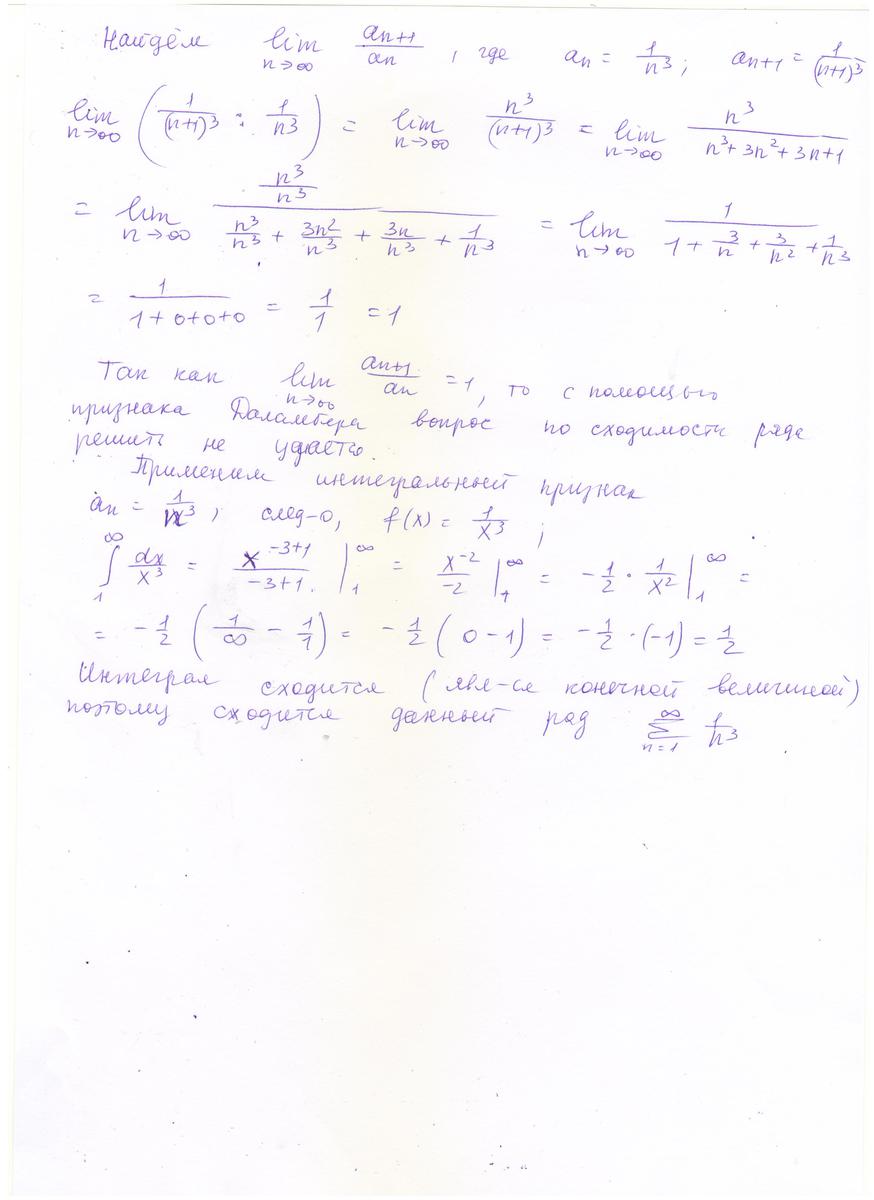 Найдём lim n→∞ an+1/an , где an = 1/n³; an+1 = 1/(n+1)³
lim n→∞ (1/(n+1)³ : 1/n³) = lim n→∞ n³/(n+1)³ = lim n→∞ n³/(n³+3n²+3n+1)
= lim n→∞ (n³/n³)/(n³/n³ + 3n²/n³ + 3n/n³ + 1/n³) = lim n→∞ 1/(1 + 3/n + 3/n² + 1/n³)
= 1/(1+0+0+0) = 1/1 = 1
Так как lim n→∞ an+1/an = 1, то с помощью
признака Даламбера вопрос по сходимости ряда
решить не удаётся.
Применим интегральный признак
an = 1/n³; след-о, f(x) = 1/x³ ;
∫₁^∞ dx/x³ = x^(-3+1)/(-3+1) |₁^∞ = x⁻²/-2 |₁^∞ = -1/2 · 1/x² |₁^∞ =
= -1/2 (1/∞ - 1/1) = -1/2 (0-1) = -1/2 · (-1) = 1/2
Интеграл сходится (явл-ся конечной величиной)
поэтому сходится данный ряд ∞ Σ n=1 1/n³